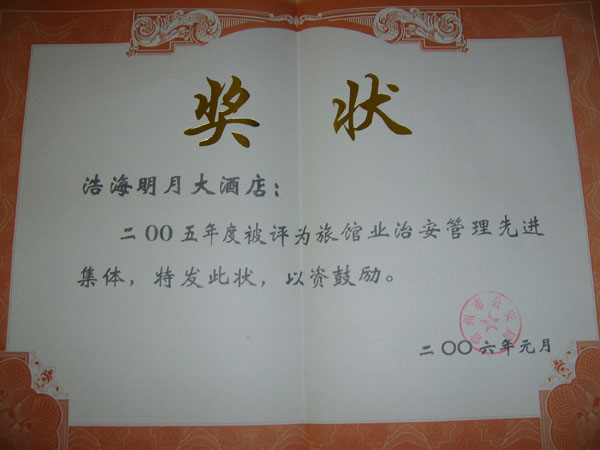 奖 状
浩海明月大酒店：
二00五年度被评为旅馆业治安管理先进
集体，特发此状，以资鼓励。
州市公安局
二00六年元月